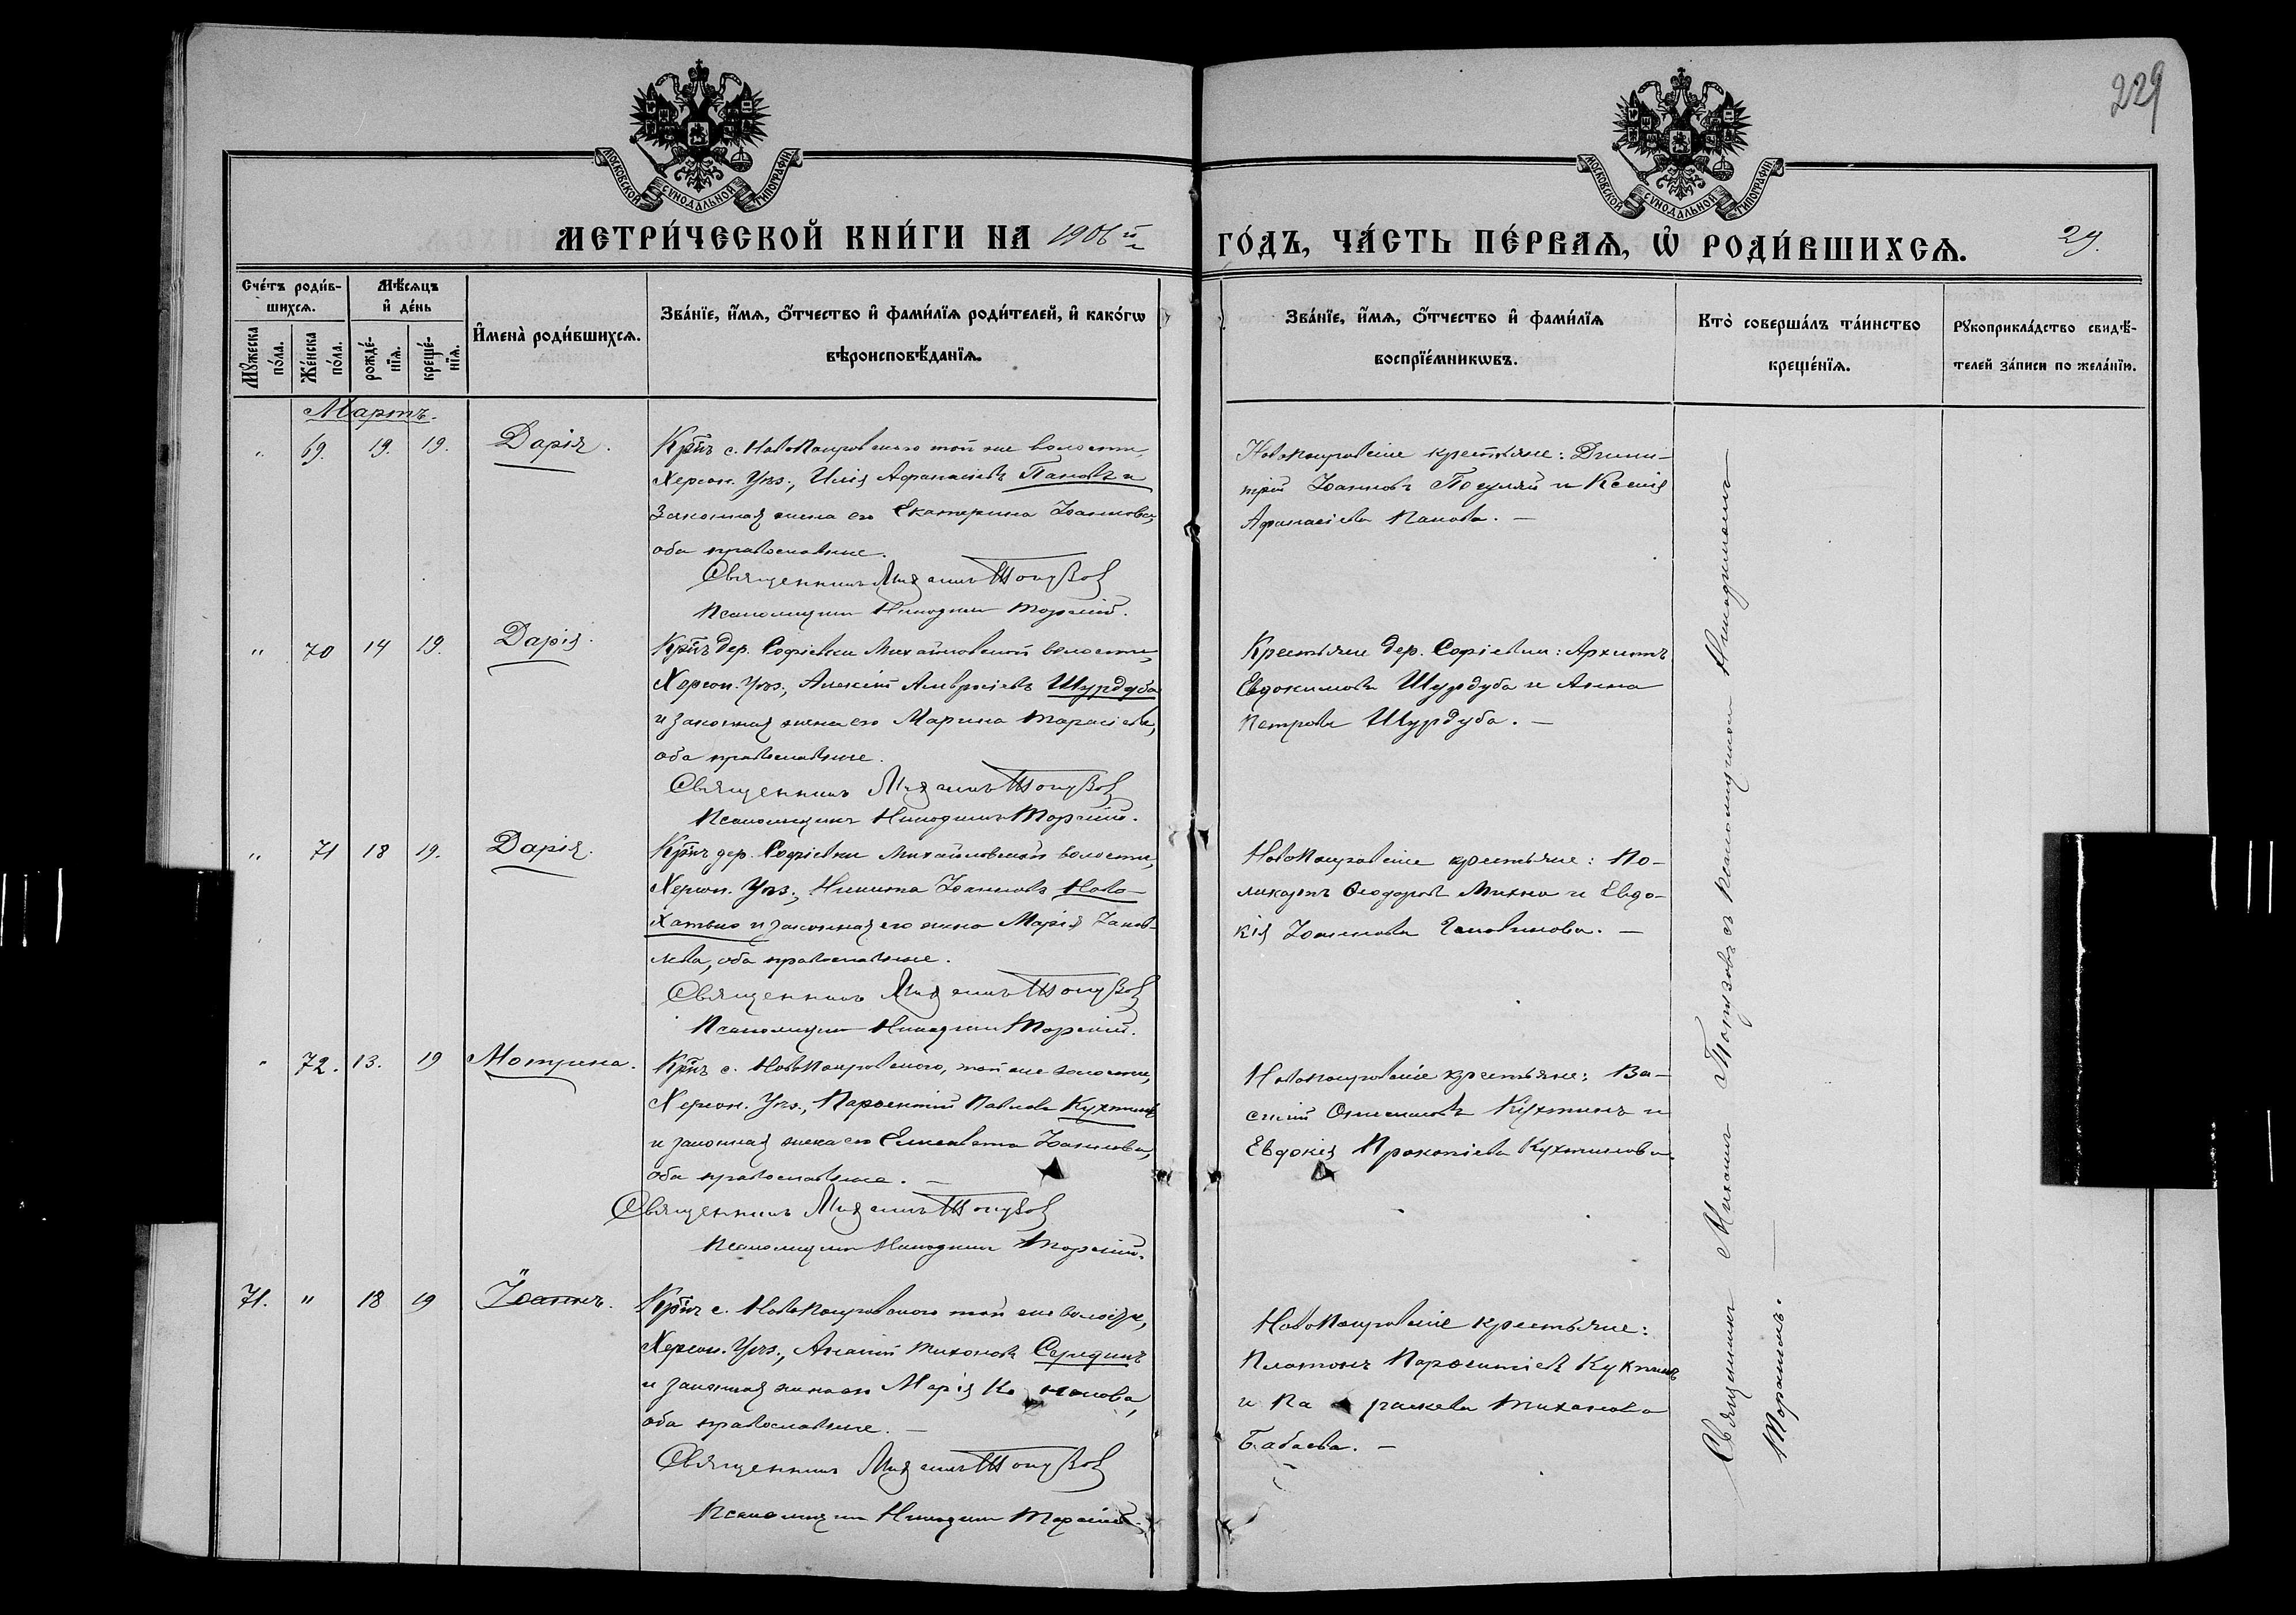 229
МОСКОВСКОЙ СѴНОДАЛЬНОЙ ТИПОГРАФІИ
МОСКОВСКОЙ СѴНОДАЛЬНОЙ ТИПОГРАФІИ
МЕТРИ́ЧЕСКОЙ КНИ́ГИ НА 1906 й
ГО́ДЪ, ЧА́СТЬ ПЕ́РВАѦ, Ѡ҆ РОДИ́ВШИХСѦ. 29.
Сче́тъ роди́в-
шихсѧ.
Мѣ́сяцъ
и҆ де́нь
Мꙋ́жеска по́ла.
Же́нска по́ла.
рожде́-нїѧ.
креще́-нїѧ.
И҆мена̀ роди́вшихсѧ.
Зва́нїе, и҆́мѧ, ѻ҆́тчество и҆ фами́лїѧ роди́телей, и҆ како́гѡ
вѣроисповѣ́данїѧ.
Зва́нїе, и҆́мѧ, ѻ҆́тчество и҆ фами́лїѧ
воспрїе́мникѡвъ.
Кто̀ соверша́лъ та́инство
креще́нїѧ.
Рꙋкоприкла́дство свидѣ́-
телей за́писи по жела́нїю.
Мартъ.
" 69. 19. 19. Дарія.
Крнъ с. Новопокровскаго той же волости,
Херсон. Уѣз., Илія Афанасіевъ Пановъ и
законная жена его Екатерина Іоаннова,
оба православные.
Священникъ Михаилъ
Псаломщикъ Никодимъ Торскій.
Новопокровскіе крестьяне: Дими-
трій Іоанновъ и Ксенія
Афанасіева Панова. —
" 70 14 19. Дарія.
Крнъ дер. Софіевки Михайловской волости,
Херсон. Уѣз., Алексій Амвросіевъ Шурдуба
и законная жена его Марина Тарасіева,
оба православные.
Священникъ Михаилъ
Псаломщикъ Никодимъ Торскій.
Крестьяне дер. Софіевки: Архипъ
Евдокимовъ Шурдуба и Анна
Петрова Шурдуба. —
" 71 18 19. Дарія.
Крнъ дер. Софіевки Михайловской волости,
Херсон. Уѣз., Никита Іоанновъ Ново-
хатько и законная его жена Марія Іаков-
лева, оба православные.
Священникъ Михаилъ
Псаломщикъ Никодимъ Торскій.
Новопокровскіе крестьяне: По-
ликарпъ Ѳеодоровъ Михно и Евдо-
кія Іоаннова
" 72. 13. 19 Мотрина.
Крнъ с. Новопокровскаго, той же волости,
Херсон. Уѣз., Парѳентій Павловъ Кухтинъ
и законная жена его Елисавета Іоаннова,
оба православные. —
Священникъ Михаилъ
Псаломщикъ Никодимъ Торскій.
Новопокровскіе крестьяне: Ва-
силій Онисимовъ Кухтинъ и
Евдокія Прокопіева Кухтинова.
71. " 18 19 Іоаннъ.
Крнъ с. Новопокровскаго той же волости,
Херсон. Уѣз., Ананій Тихоновъ Середин
и законная жена его Марія
оба православные. —
Священникъ Михаилъ
Псаломщикъ Никодимъ Торскій.
Новопокровскіе крестьяне:
Платонъ Парѳентіевъ Кухтинъ
и Параскева Тиханова
Бабаева. —
Священникъ Михаилъ съ псаломщикомъ Никодимомъ
Торскимъ. —